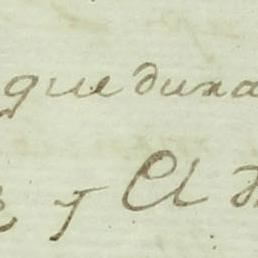 que dura
y El